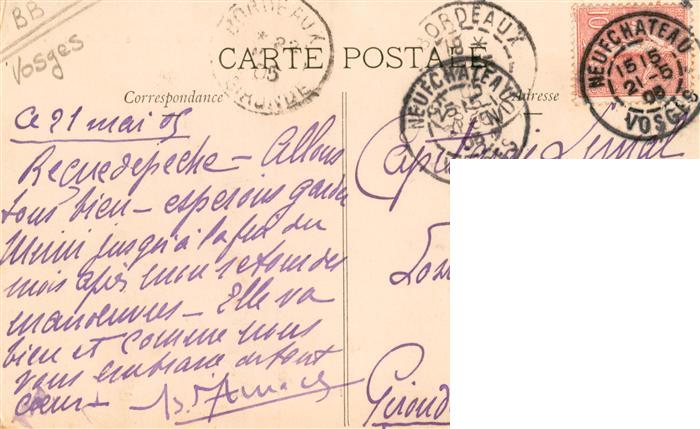 BB
Vosges
BORDEAUX
05
GIRONDE
CARTE POSTALE
BORDEAUX
NEUFCHATEAU
VOSGES
10
NEUFCHATEAU
15 15
21 -5
05
VOSGES
Correspondance
Adresse
Ce 21 mai 05
Reçu depeche - Allons
tous bien - esperons garder
Mimi jusqu'à la fin du
mois après mon retour des
manoeuvres - Elle va
bien et comme nous
vous embrasse de tout
coeur -
Gironde